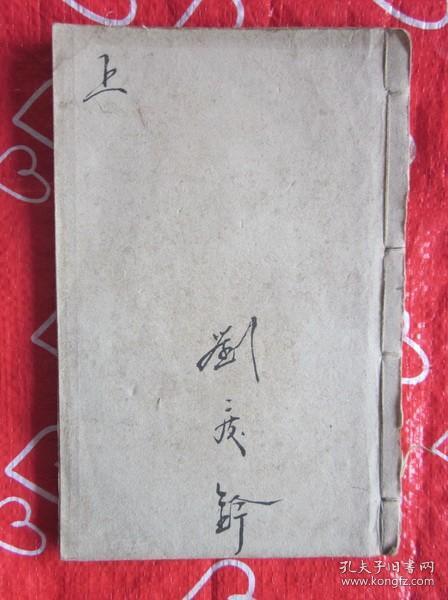 上
劉
鈐
孔夫子旧书网
www.kongfz.com